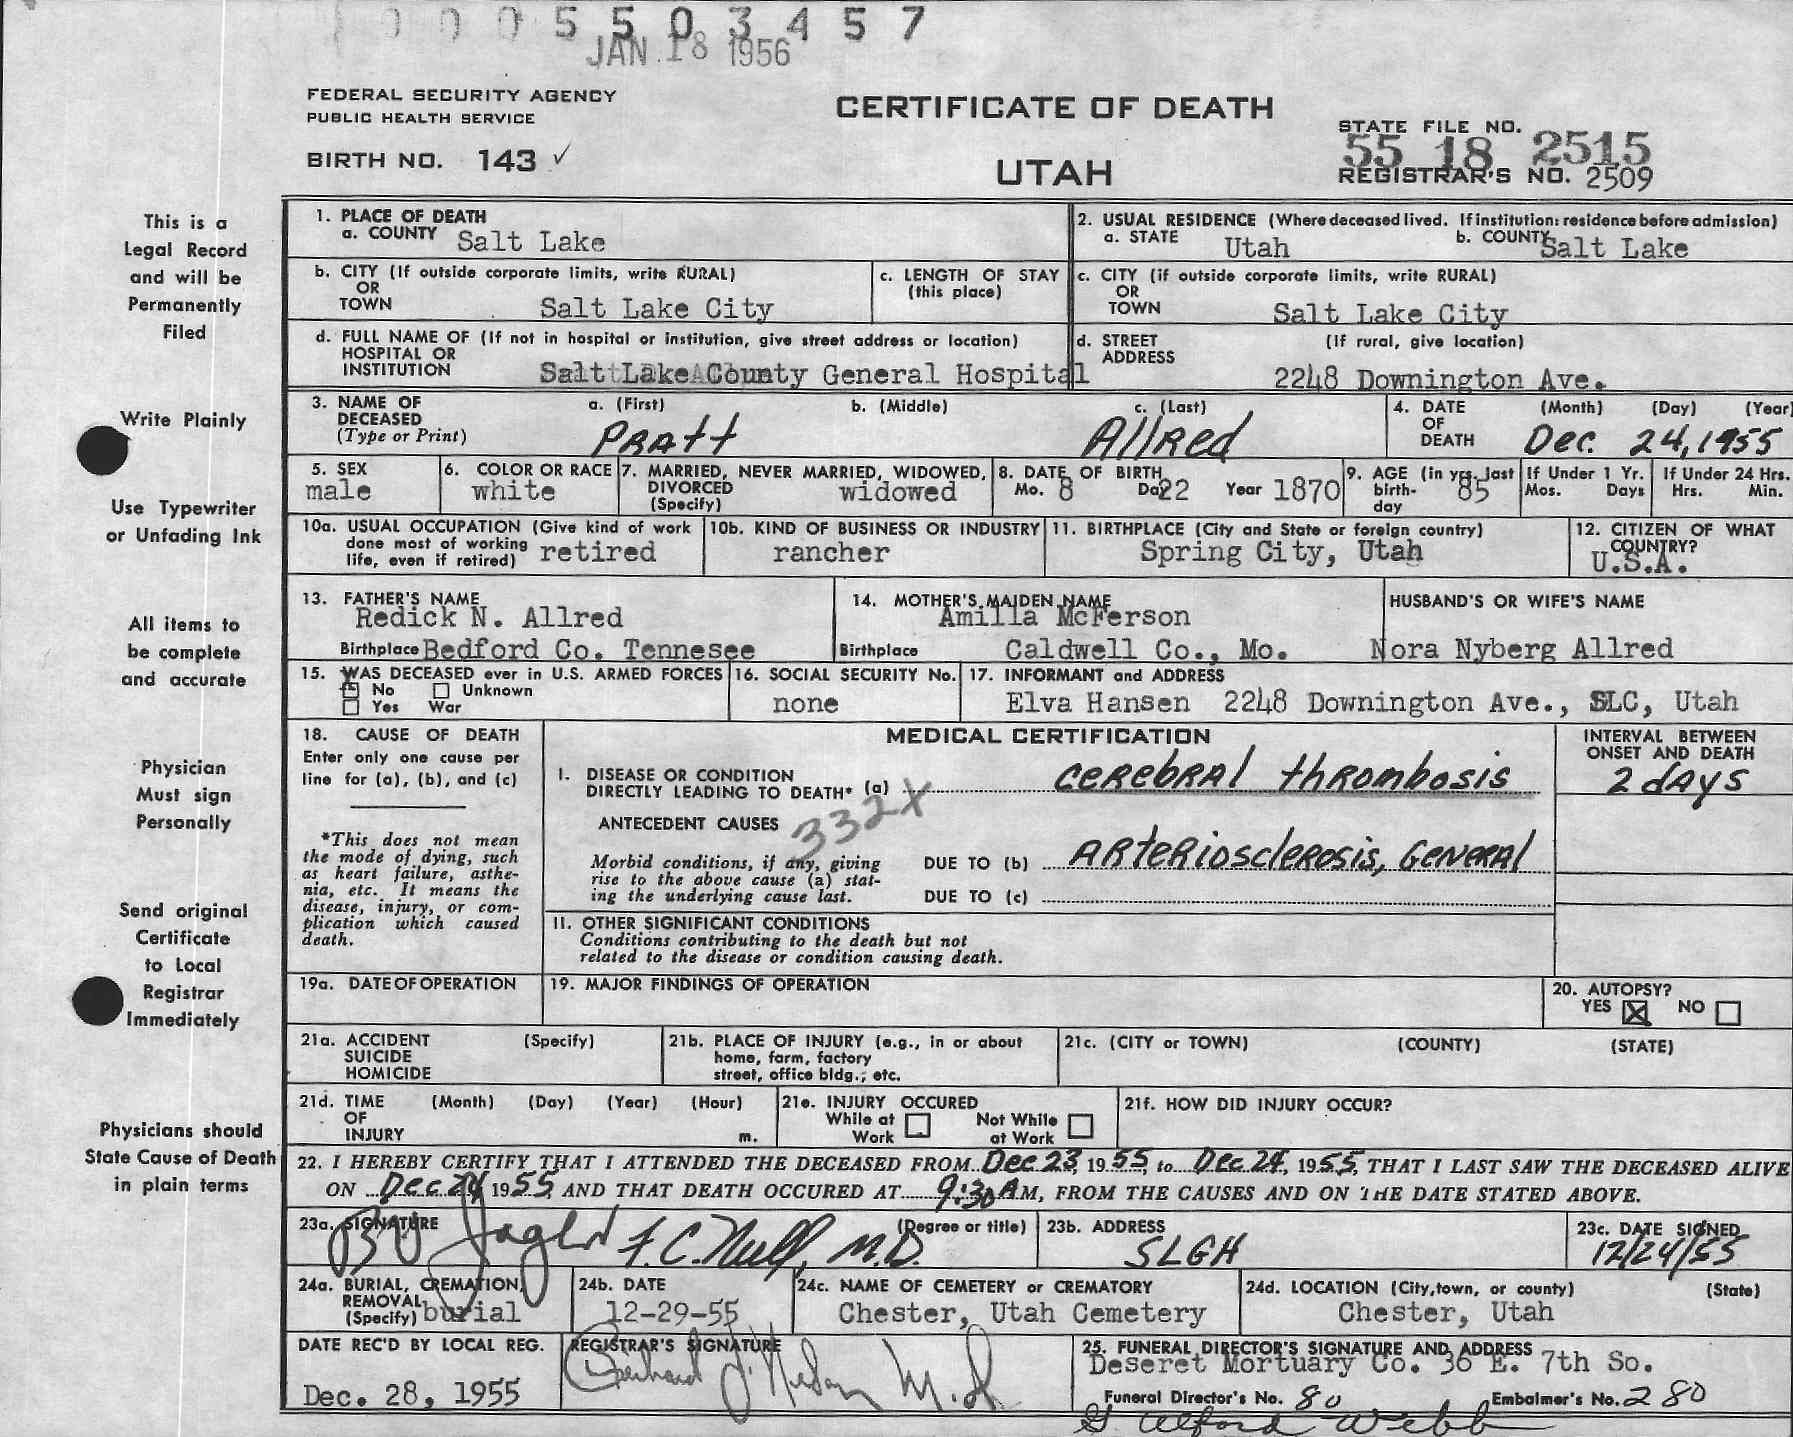 0 0 0 5 5 0 3 4 5 7
JAN 18 1956
FEDERAL SECURITY AGENCY
PUBLIC HEALTH SERVICE
BIRTH NO. 143 ✓
CERTIFICATE OF DEATH
UTAH
STATE FILE NO.
55 18 2515
REGISTRAR'S NO. 2509
This is a
Legal Record
and will be
Permanently
Filed
Write Plainly
Use Typewriter
or Unfading Ink
All items to
be complete
and accurate
Physician
Must sign
Personally
Send original
Certificate
to Local
Registrar
Immediately
Physicians should
State Cause of Death
in plain terms
1. PLACE OF DEATH
a. COUNTY Salt Lake
2. USUAL RESIDENCE (Where deceased lived. If institution: residence before admission)
a. STATE Utah b. COUNTY Salt Lake
b. CITY (If outside corporate limits, write RURAL)
OR
TOWN Salt Lake City
c. LENGTH OF STAY
(this place)
c. CITY (if outside corporate limits, write RURAL)
OR
TOWN Salt Lake City
d. FULL NAME OF (If not in hospital or institution, give street address or location)
HOSPITAL OR
INSTITUTION Salt Lake County General Hospital
d. STREET (If rural, give location)
ADDRESS
2248 Downington Ave.
3. NAME OF DECEASED (Type or Print)
a. (First) b. (Middle) c. (Last)
Pratt Allred
4. DATE OF DEATH (Month) (Day) (Year)
Dec. 24, 1955
5. SEX
male
6. COLOR OR RACE
white
7. MARRIED, NEVER MARRIED, WIDOWED,
DIVORCED
(Specify) widowed
8. DATE OF BIRTH
Mo. 8 Da 22 Year 1870
9. AGE (in yrs. last
birth-
day 85
If Under 1 Yr.
Mos. Days
If Under 24 Hrs.
Hrs. Min.
10a. USUAL OCCUPATION (Give kind of work
done most of working
life, even if retired) retired
10b. KIND OF BUSINESS OR INDUSTRY
rancher
11. BIRTHPLACE (City and State or foreign country)
Spring City, Utah
12. CITIZEN OF WHAT
COUNTRY?
U.S.A.
13. FATHER'S NAME
Redick N. Allred
Birthplace Bedford Co. Tennesee
14. MOTHER'S MAIDEN NAME
Amilla McFerson
Birthplace Caldwell Co., Mo.
HUSBAND'S OR WIFE'S NAME
Nora Nyberg Allred
15. WAS DECEASED ever in U.S. ARMED FORCES
No Unknown
Yes War
16. SOCIAL SECURITY No.
none
17. INFORMANT and ADDRESS
Elva Hansen 2248 Downington Ave., SLC, Utah
18. CAUSE OF DEATH
Enter only one cause per
line for (a), (b), and (c)
*This does not mean
the mode of dying, such
as heart failure, asthe-
nia, etc. It means the
disease, injury, or com-
plication which caused
death.
MEDICAL CERTIFICATION
I. DISEASE OR CONDITION
DIRECTLY LEADING TO DEATH* (a) cerebral thrombosis
332X
ANTECEDENT CAUSES
Morbid conditions, if any, giving
rise to the above cause (a) stat-
ing the underlying cause last.
DUE TO (b) Arteriosclerosis, General
DUE TO (c)
INTERVAL BETWEEN
ONSET AND DEATH
2 days
II. OTHER SIGNIFICANT CONDITIONS
Conditions contributing to the death but not
related to the disease or condition causing death.
19a. DATE OF OPERATION
19. MAJOR FINDINGS OF OPERATION
20. AUTOPSY?
YES ☒ NO ☐
21a. ACCIDENT (Specify)
SUICIDE
HOMICIDE
21b. PLACE OF INJURY (e.g., in or about
home, farm, factory
street, office bldg.; etc.
21c. (CITY or TOWN) (COUNTY) (STATE)
21d. TIME (Month) (Day) (Year) (Hour)
OF
INJURY m.
21e. INJURY OCCURED
While at Work ☐ Not While at Work ☐
21f. HOW DID INJURY OCCUR?
22. I HEREBY CERTIFY THAT I ATTENDED THE DECEASED FROM Dec 23, 1955, to Dec 24, 1955, THAT I LAST SAW THE DECEASED ALIVE
ON Dec 24 1955, AND THAT DEATH OCCURED AT 9:30 AM, FROM THE CAUSES AND ON THE DATE STATED ABOVE.
23a. SIGNATURE (Degree or title)
F. C. Null, M.D.
23b. ADDRESS
SLGH
23c. DATE SIGNED
12/24/55
24a. BURIAL, CREMATION,
REMOVAL
(Specify) burial
24b. DATE
12-29-55
24c. NAME OF CEMETERY or CREMATORY
Chester, Utah Cemetery
24d. LOCATION (City, town, or county) (State)
Chester, Utah
DATE REC'D BY LOCAL REG.
Dec. 28, 1955
REGISTRAR'S SIGNATURE
M.D.
25. FUNERAL DIRECTOR'S SIGNATURE AND ADDRESS
Deseret Mortuary Co. 36 E. 7th So.
Funeral Director's No. 80 Embalmer's No. 280
G Alford Webb